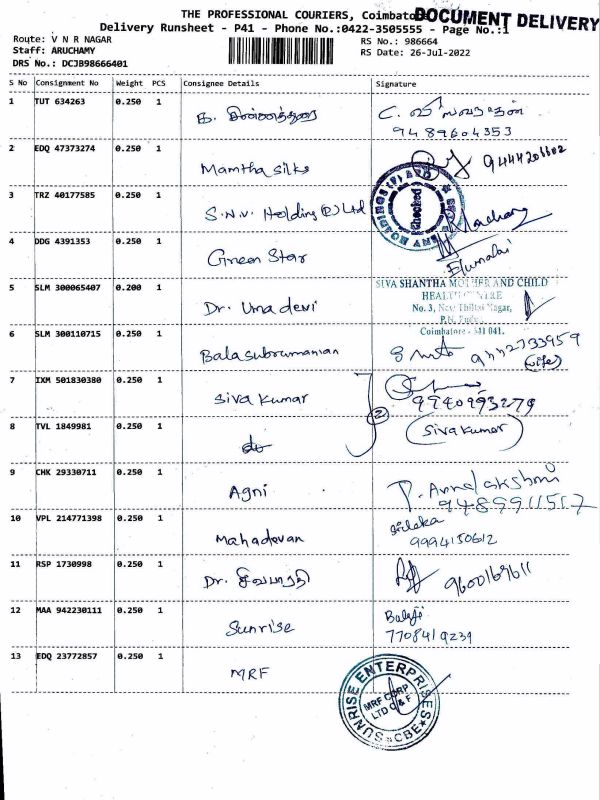 THE PROFESSIONAL COURIERS, Coimbato
DOCUMENT DELIVERY
Delivery Runsheet - P41 - Phone No.:0422-3505555 - Page No.:1
Route: V N R NAGAR
RS No.: 986664
Staff: ARUCHAMY
RS Date: 26-Jul-2022
DRS No.: DCJB98666401
S No Consignment No Weight PCS Consignee Details Signature
1 TUT 634263 0.250 1
9489604353
2 EDQ 47373274 0.250 1 Mamtha Silks
3 TRZ 40177585 0.250 1 S.N.V. Holding (P) Ltd
Checked
4 DDG 4391353 0.250 1 Green Star Elumalai
5 SLM 300065407 0.200 1 Dr. Umadevi
SIVA SHANTHA MOTHER AND CHILD
HEALTH CENTRE
No. 3, New Thillai Nagar,
Coimbatore - 641 041.
6 SLM 300110715 0.250 1 Balasubramanian
(wife)
7 IXM 501830380 0.250 1 Siva kumar 9940993279
2
8 TVL 1849981 0.250 1 do (Siva kumar)
9 CHK 29330711 0.250 1 Agni P. Annalakshmi
10 VPL 214771398 0.250 1 Mahadevan
9994150612
11 RSP 1730998 0.250 1 Dr. சிவபாரதி
12 MAA 942230111 0.250 1 Sunrise Balaji
7708419239
13 EDQ 23772857 0.250 1 MRF
SUNRISE ENTERPRISES
MRF CORP
LTD C & F
CBE